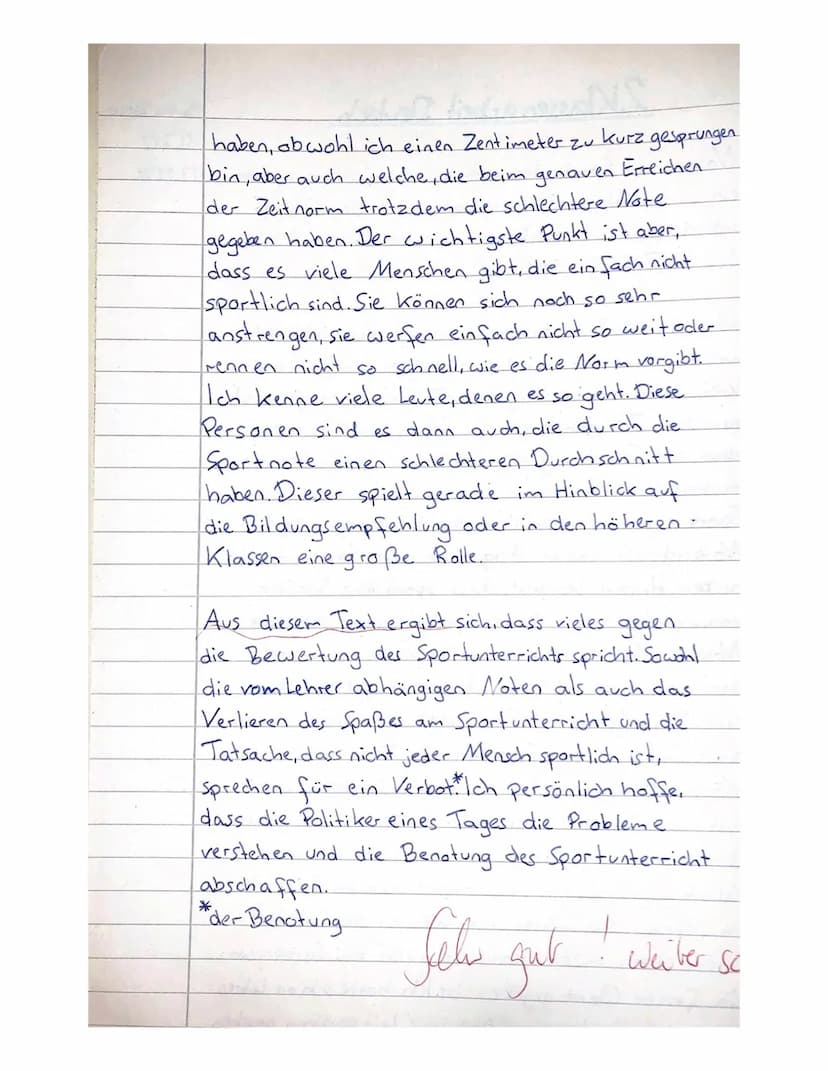 haben, obwohl ich einen Zentimeter zu kurz gesprungen
bin, aber auch welche, die beim genauen Erreichen
der Zeitnorm trotzdem die schlechtere Note
gegeben haben. Der wichtigste Punkt ist aber,
dass es viele Menschen gibt, die einfach nicht
sportlich sind. Sie können sich noch so sehr
anstrengen, sie werfen einfach nicht so weit oder
rennen nicht so schnell, wie es die Norm vorgibt.
Ich kenne viele Leute, denen es so geht. Diese
Personen sind es dann auch, die durch die
Sportnote einen schlechteren Durchschnitt
haben. Dieser spielt gerade im Hinblick auf
die Bildungsempfehlung oder in den höheren
Klassen eine große Rolle.
Aus diesem Text ergibt sich, dass vieles gegen
die Bewertung des Sportunterrichts spricht. Sowohl
die vom Lehrer abhängigen Noten als auch das
Verlieren des Spaßes am Sportunterricht und die
Tatsache, dass nicht jeder Mensch sportlich ist,
sprechen für ein Verbot.* Ich persönlich hoffe,
dass die Politiker eines Tages die Probleme
verstehen und die Benotung des Sportunterricht
abschaffen.
*der Benotung
Sehr gut! weiter so